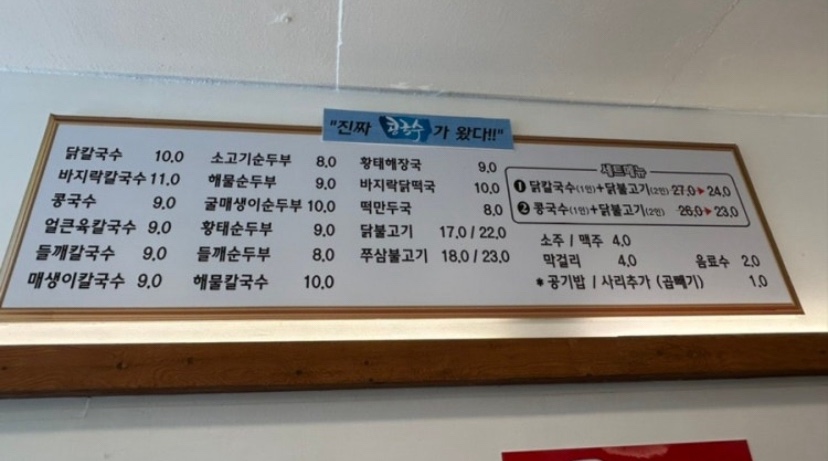 "진짜 콩국수가 왔다!!"
닭칼국수 10.0
바지락칼국수 11.0
콩국수 9.0
얼큰육칼국수 9.0
들깨칼국수 9.0
매생이칼국수 9.0
소고기순두부 8.0
해물순두부 9.0
굴매생이순두부 10.0
황태순두부 9.0
들깨순두부 8.0
해물칼국수 10.0
황태해장국 9.0
바지락닭떡국 10.0
떡만두국 8.0
닭불고기 17.0 / 22.0
쭈삼불고기 18.0 / 23.0
세트메뉴
❶ 닭칼국수(1인)+닭불고기(2인) 27.0▶24.0
❷ 콩국수(1인)+닭불고기(2인) 26.0▶23.0
소주 / 맥주 4.0
막걸리 4.0 음료수 2.0
*공기밥 / 사리추가 (곱빼기) 1.0